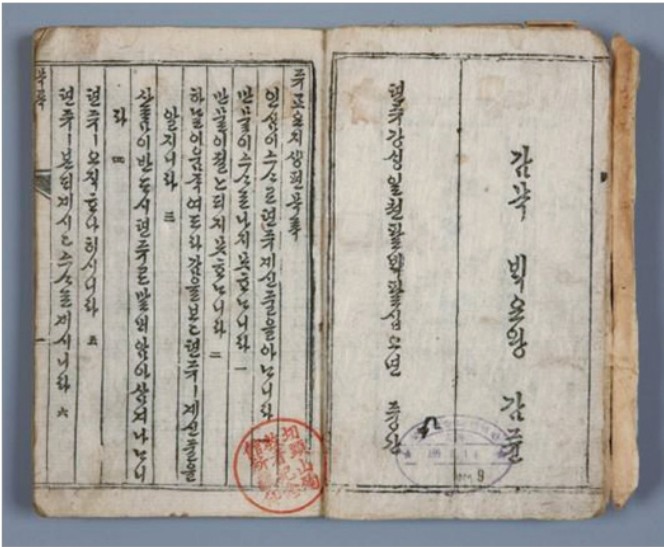 감목 ᄇᆡᆨ요왕 감쥰
텬쥬강ᄉᆡᆼ일쳔팔ᄇᆡᆨ팔십오년 즁간
쥬교요지샹편목록
인심이스ᄉᆞ로텬쥬계신줄을아ᄂᆞ니라
만물이스ᄉᆞ로나지못ᄒᆞᄂᆞ니라 一
만물이졀노되지못ᄒᆞᄂᆞ니라 二
하ᄂᆞᆯ이움ᄌᆞᆨ여도라감을보고텬쥬ㅣ계신줄을
알지니라 三
사ᄅᆞᆷ이반ᄃᆞ시텬쥬로말ᄆᆡ암아삼겨나ᄂᆞ니
라 四
텬쥬ㅣ오직ᄒᆞ나히시니라 五
텬쥬ㅣ본ᄃᆡ계시고스ᄉᆞ로계시니라 六
목록